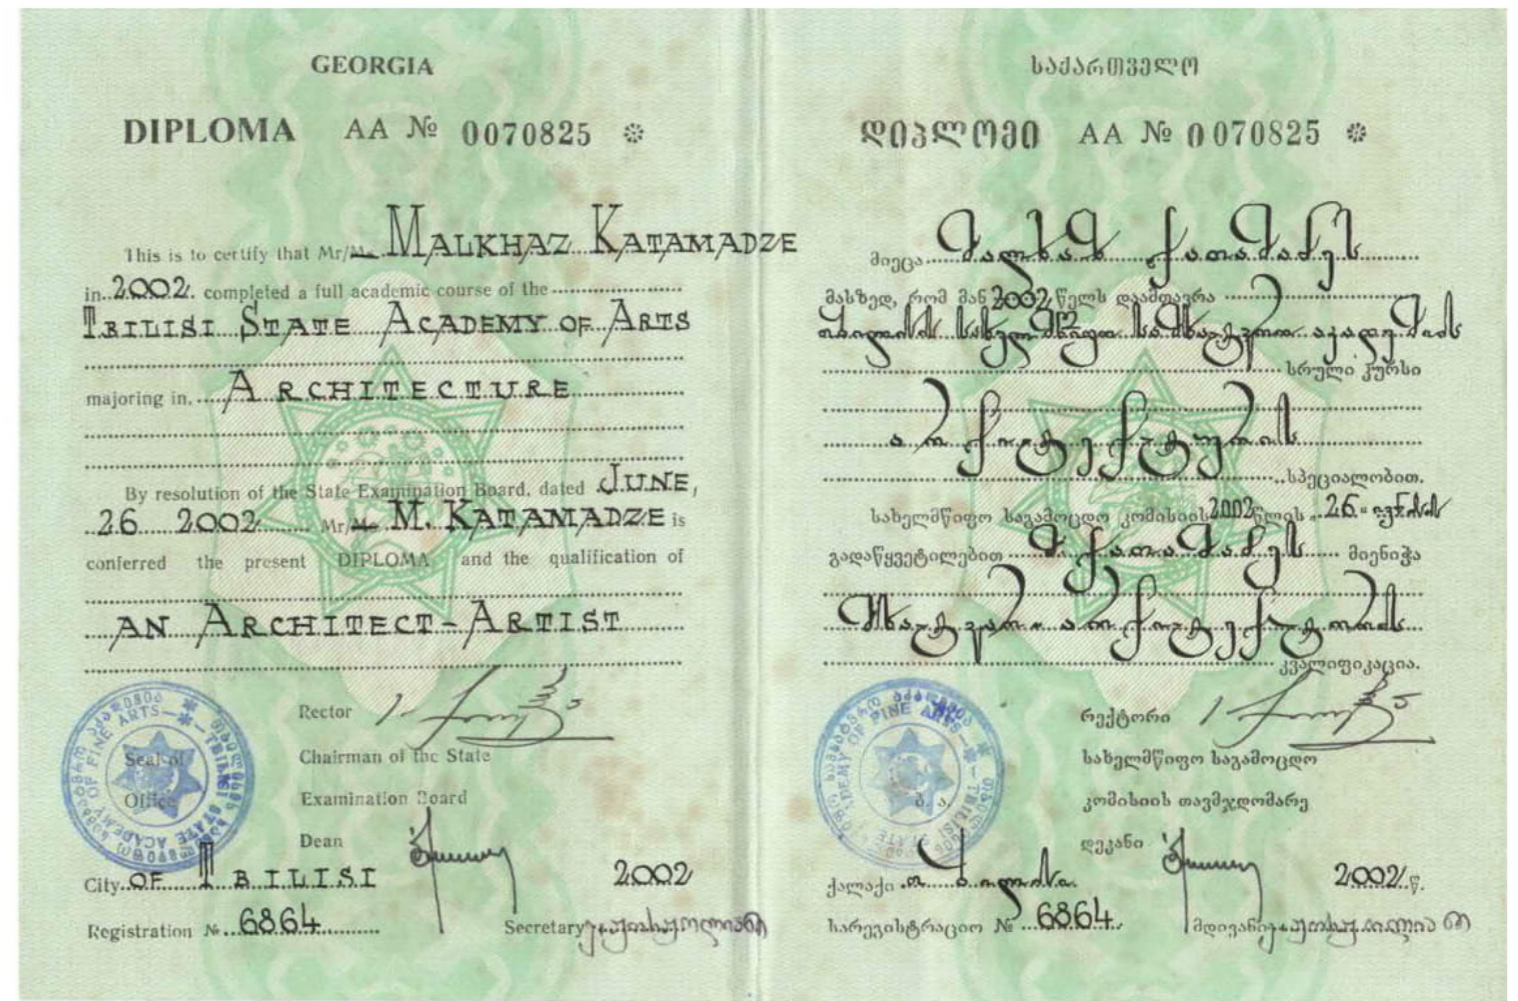 GEORGIA
DIPLOMA AA № 0070825
This is to certify that Mr/Ms MALKHAZ KATAMADZE
in 2002 completed a full academic course of the
TBILISI STATE ACADEMY OF ARTS
majoring in ARCHITECTURE
By resolution of the State Examination Board, dated JUNE,
26 2002 Mr/Ms M. KATAMADZE is
conferred the present DIPLOMA and the qualification of
AN ARCHITECT-ARTIST
Rector
Chairman of the State
Examination Board
Dean
Seal of
Office
City OF TBILISI 2002
Registration № 6864 Secretary
საქართველო
დიპლომი AA № 0070825
მიეცა მალხაზ ქათამაძეს
მასზედ, რომ მან 2002 წელს დაამთავრა
თბილისის სახელმწიფო სამხატვრო აკადემიის
სრული კურსი
არქიტექტურის
სპეციალობით.
სახელმწიფო საგამოცდო კომისიის 2002 წლის „26“ ივნისის
გადაწყვეტილებით მ. ქათამაძეს მიენიჭა
მხატვარ-არქიტექტორის
კვალიფიკაცია.
რექტორი
სახელმწიფო საგამოცდო
კომისიის თავმჯდომარე
დეკანი
ბ. ა.
ქალაქი თბილისი 2002 წ.
სარეგისტრაციო № 6864 მდივანი
TBILISI STATE ACADEMY OF FINE ARTS